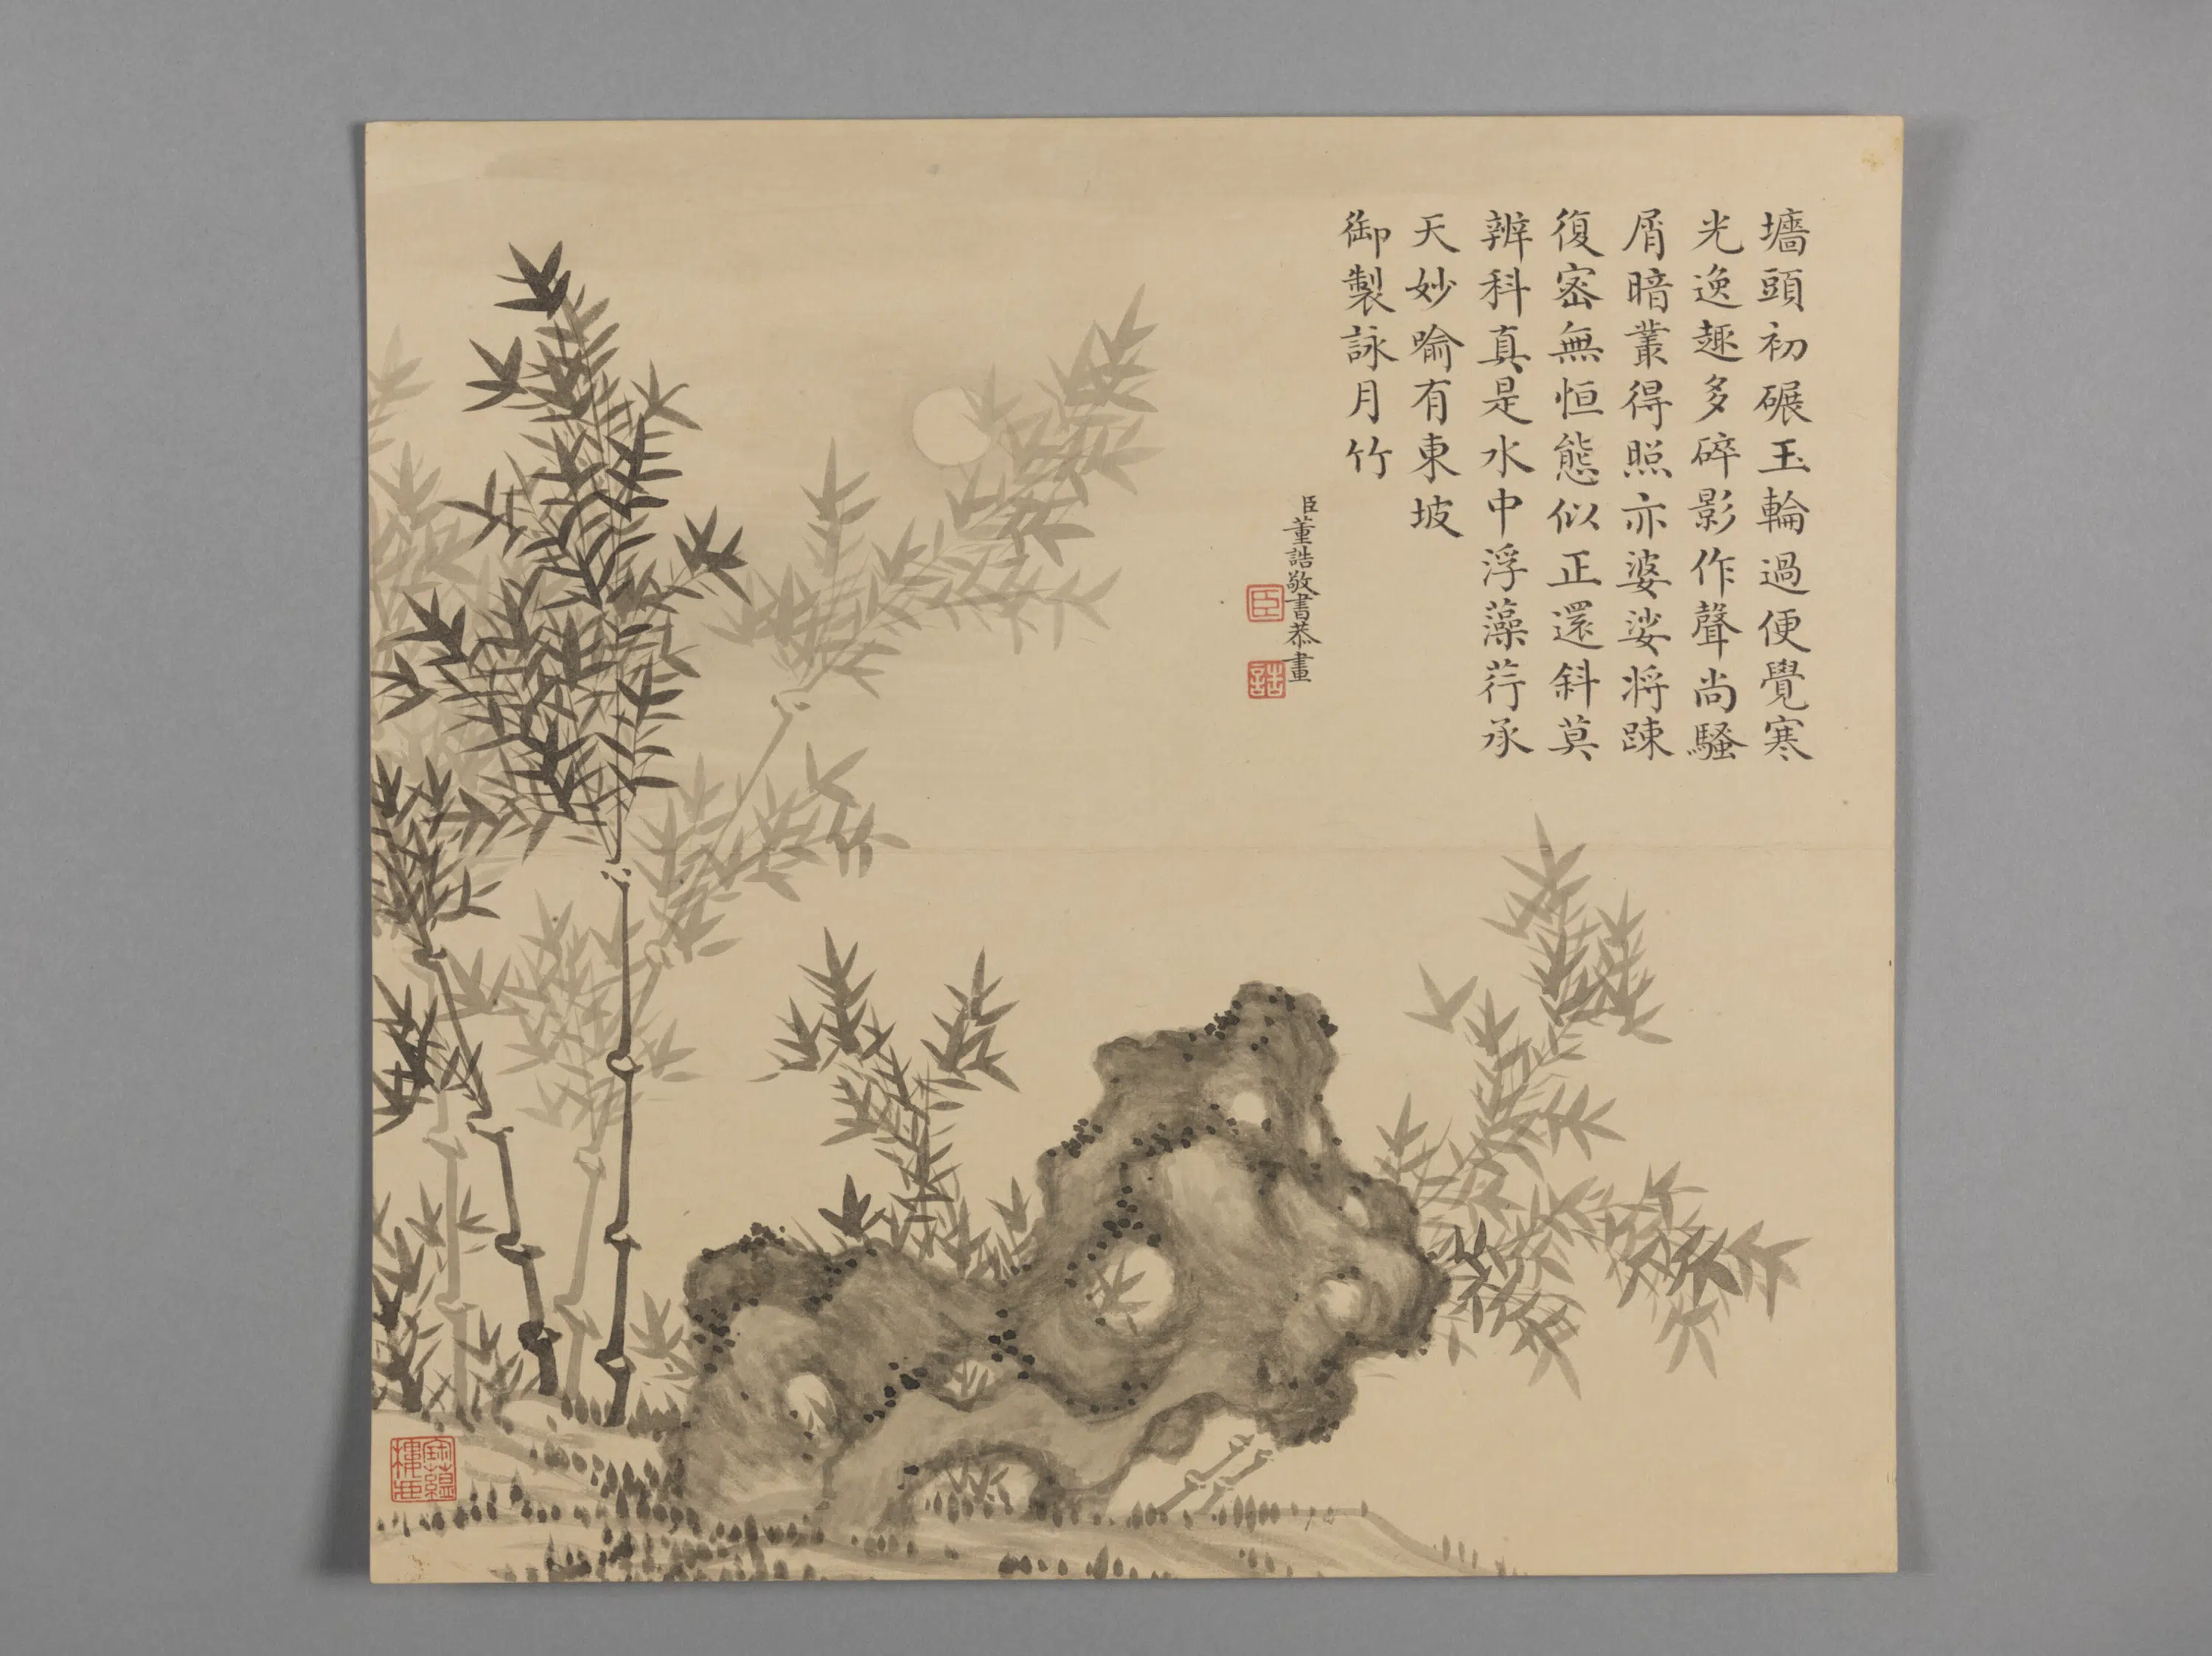 墻頭初碾玉輪過便覺寒
光逸趣多碎影作聲尚騷
屑暗叢得照亦婆娑將踈
復密無恒態似正還斜莫
辨科真是水中浮藻荇承
天妙喻有東坡
御製詠月竹
臣董誥敬書恭畫
臣
誥